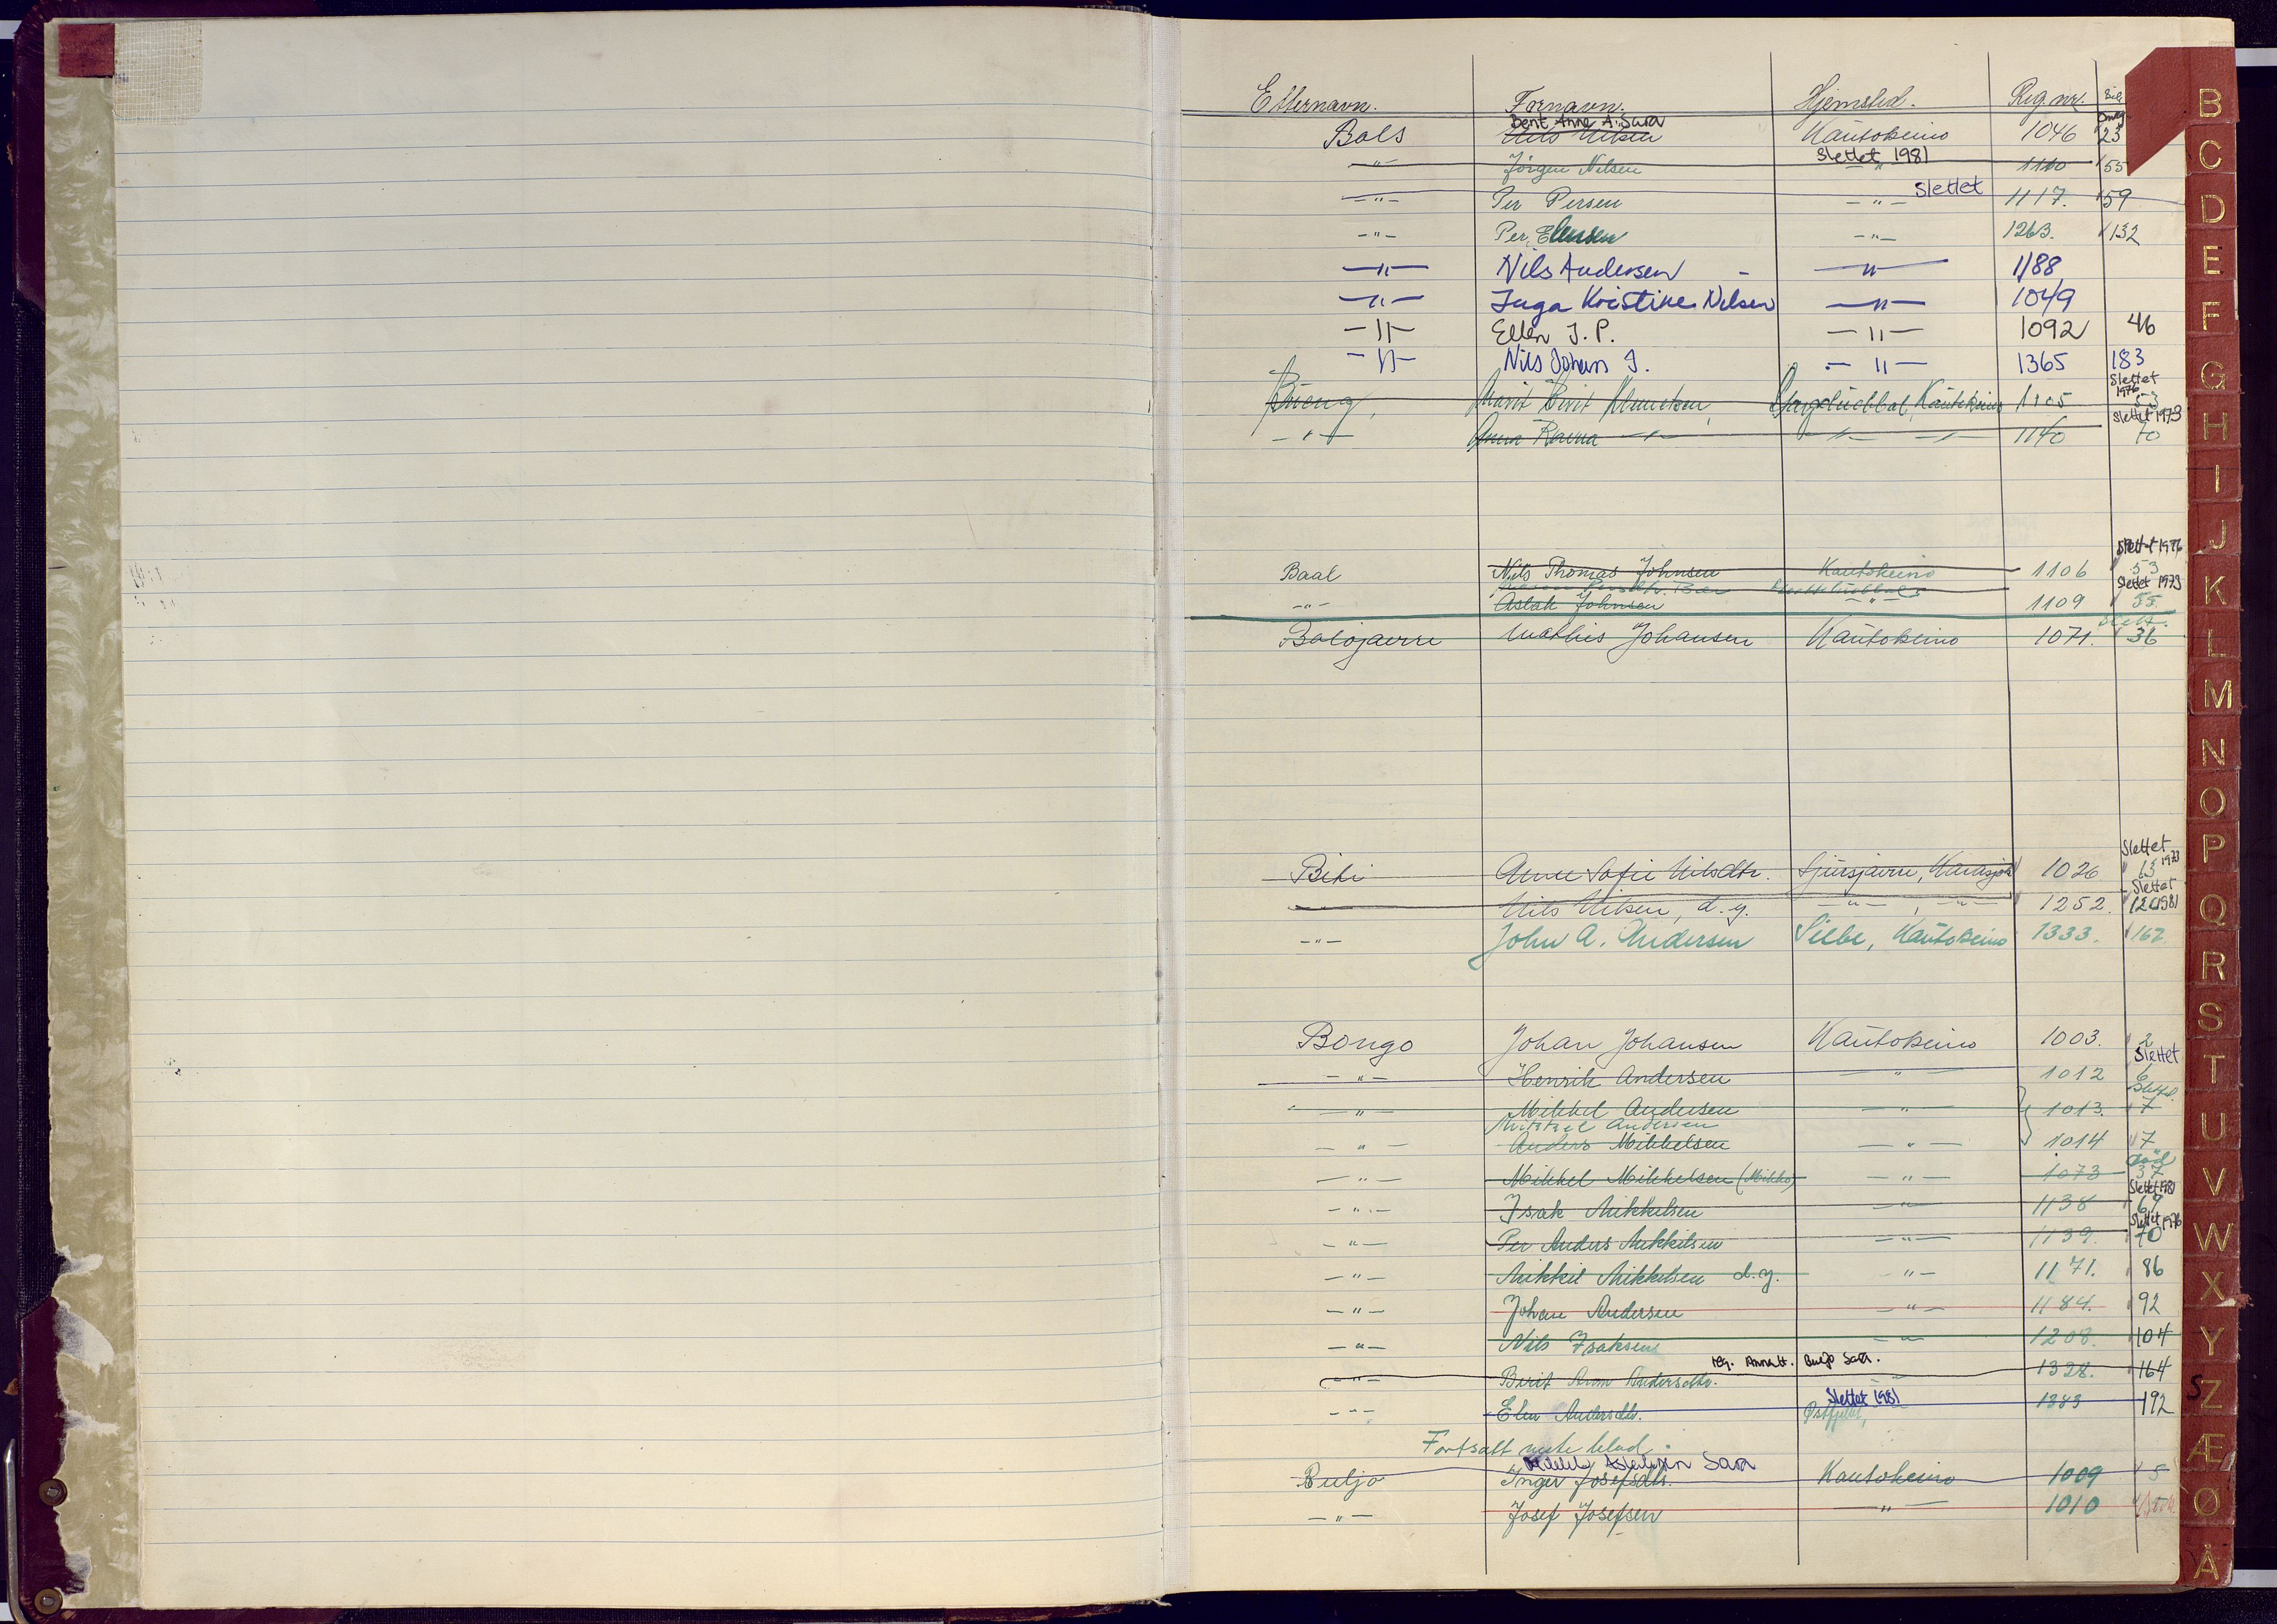 Etternavn. Fornavn. Hjemsted. Reg. nr.
Bent Anne A. Sara
Bals Nils Nilsen Kautokeino 1046 23
Slettet 1981
—"— Jörgen Nilsen " 1110 55
Slettet
—"— Per Persen —"— 1117. 59
—"— Per Elensen —"— 1263. 132
—"— Nils Andersen —"— 1188
—"— Inga Kristine Nilsen —"— 1049
—"— Ellen J. P. —"— 1092 46
—"— Nils Johan J. —"— 1365 183
Slettet 1976
Marit Berit Klemetsen, Kautokeino 1105 53
Slettet 1973
—"— Anna Ravna —"— —"— —"— 1140 70
Slettet 1976
Baal Nils Thomas Johnsen Kautokeino 1106 53
Slettet 1973
—"— Aslak Johnsen —"— 1109 55.
Slett.
Balojavrre Mathis Johansen Kautokeino 1071. 36
Slettet 1973
Biti Anne Sofie Nilsdtr. Karasjok 1026 13
Slettet 1981
Nils Nilsen, d.y. —"—, —"— 1252.
—"— John A. Andersen Siebe, Kautokeino 1333. 167
Bongo Johan Johansen Kautokeino 1003. 2
Slettet
—"— Henrik Andersen —"— 1012 6
Slettet.
—"— Mikkel Andersen —"— 1013. 7
Mikkel Andersen
—"— Anders Mikkelsen —"— 1014 7
död
—"— Mikkel Mikkelsen (Mikko) —"— 1073 37
Slettet 1981
—"— Isak Mikkelsen —"— 1138 69
Slettet 1976
—"— Per Anders Mikkelsen —"— 1139. 70
—"— Mikkel Mikkelsen d.y. —"— 1171. 86
—"— Johan Andersen —"— 1184. 92
—"— Nils Isaksen —"— 1208. 104
reg. Anna H. Buljo Sara.
—"— Berit Anne Andersdtr. —"— 1328. 164
Slettet 1981
—"— Elen Andersdtr. 1383 192
Fortsatt neste blad.
Aslaksen Sara
Buljo Inger Josefsdtr. Kautokeino 1009 5
—"— Josef Josefsen —"— 1010
B
C
D
E
F
G
H
I
J
K
L
M
N
O
P
Q
R
S
T
U
V
W
X
Y
Z
Æ
Ø
Å